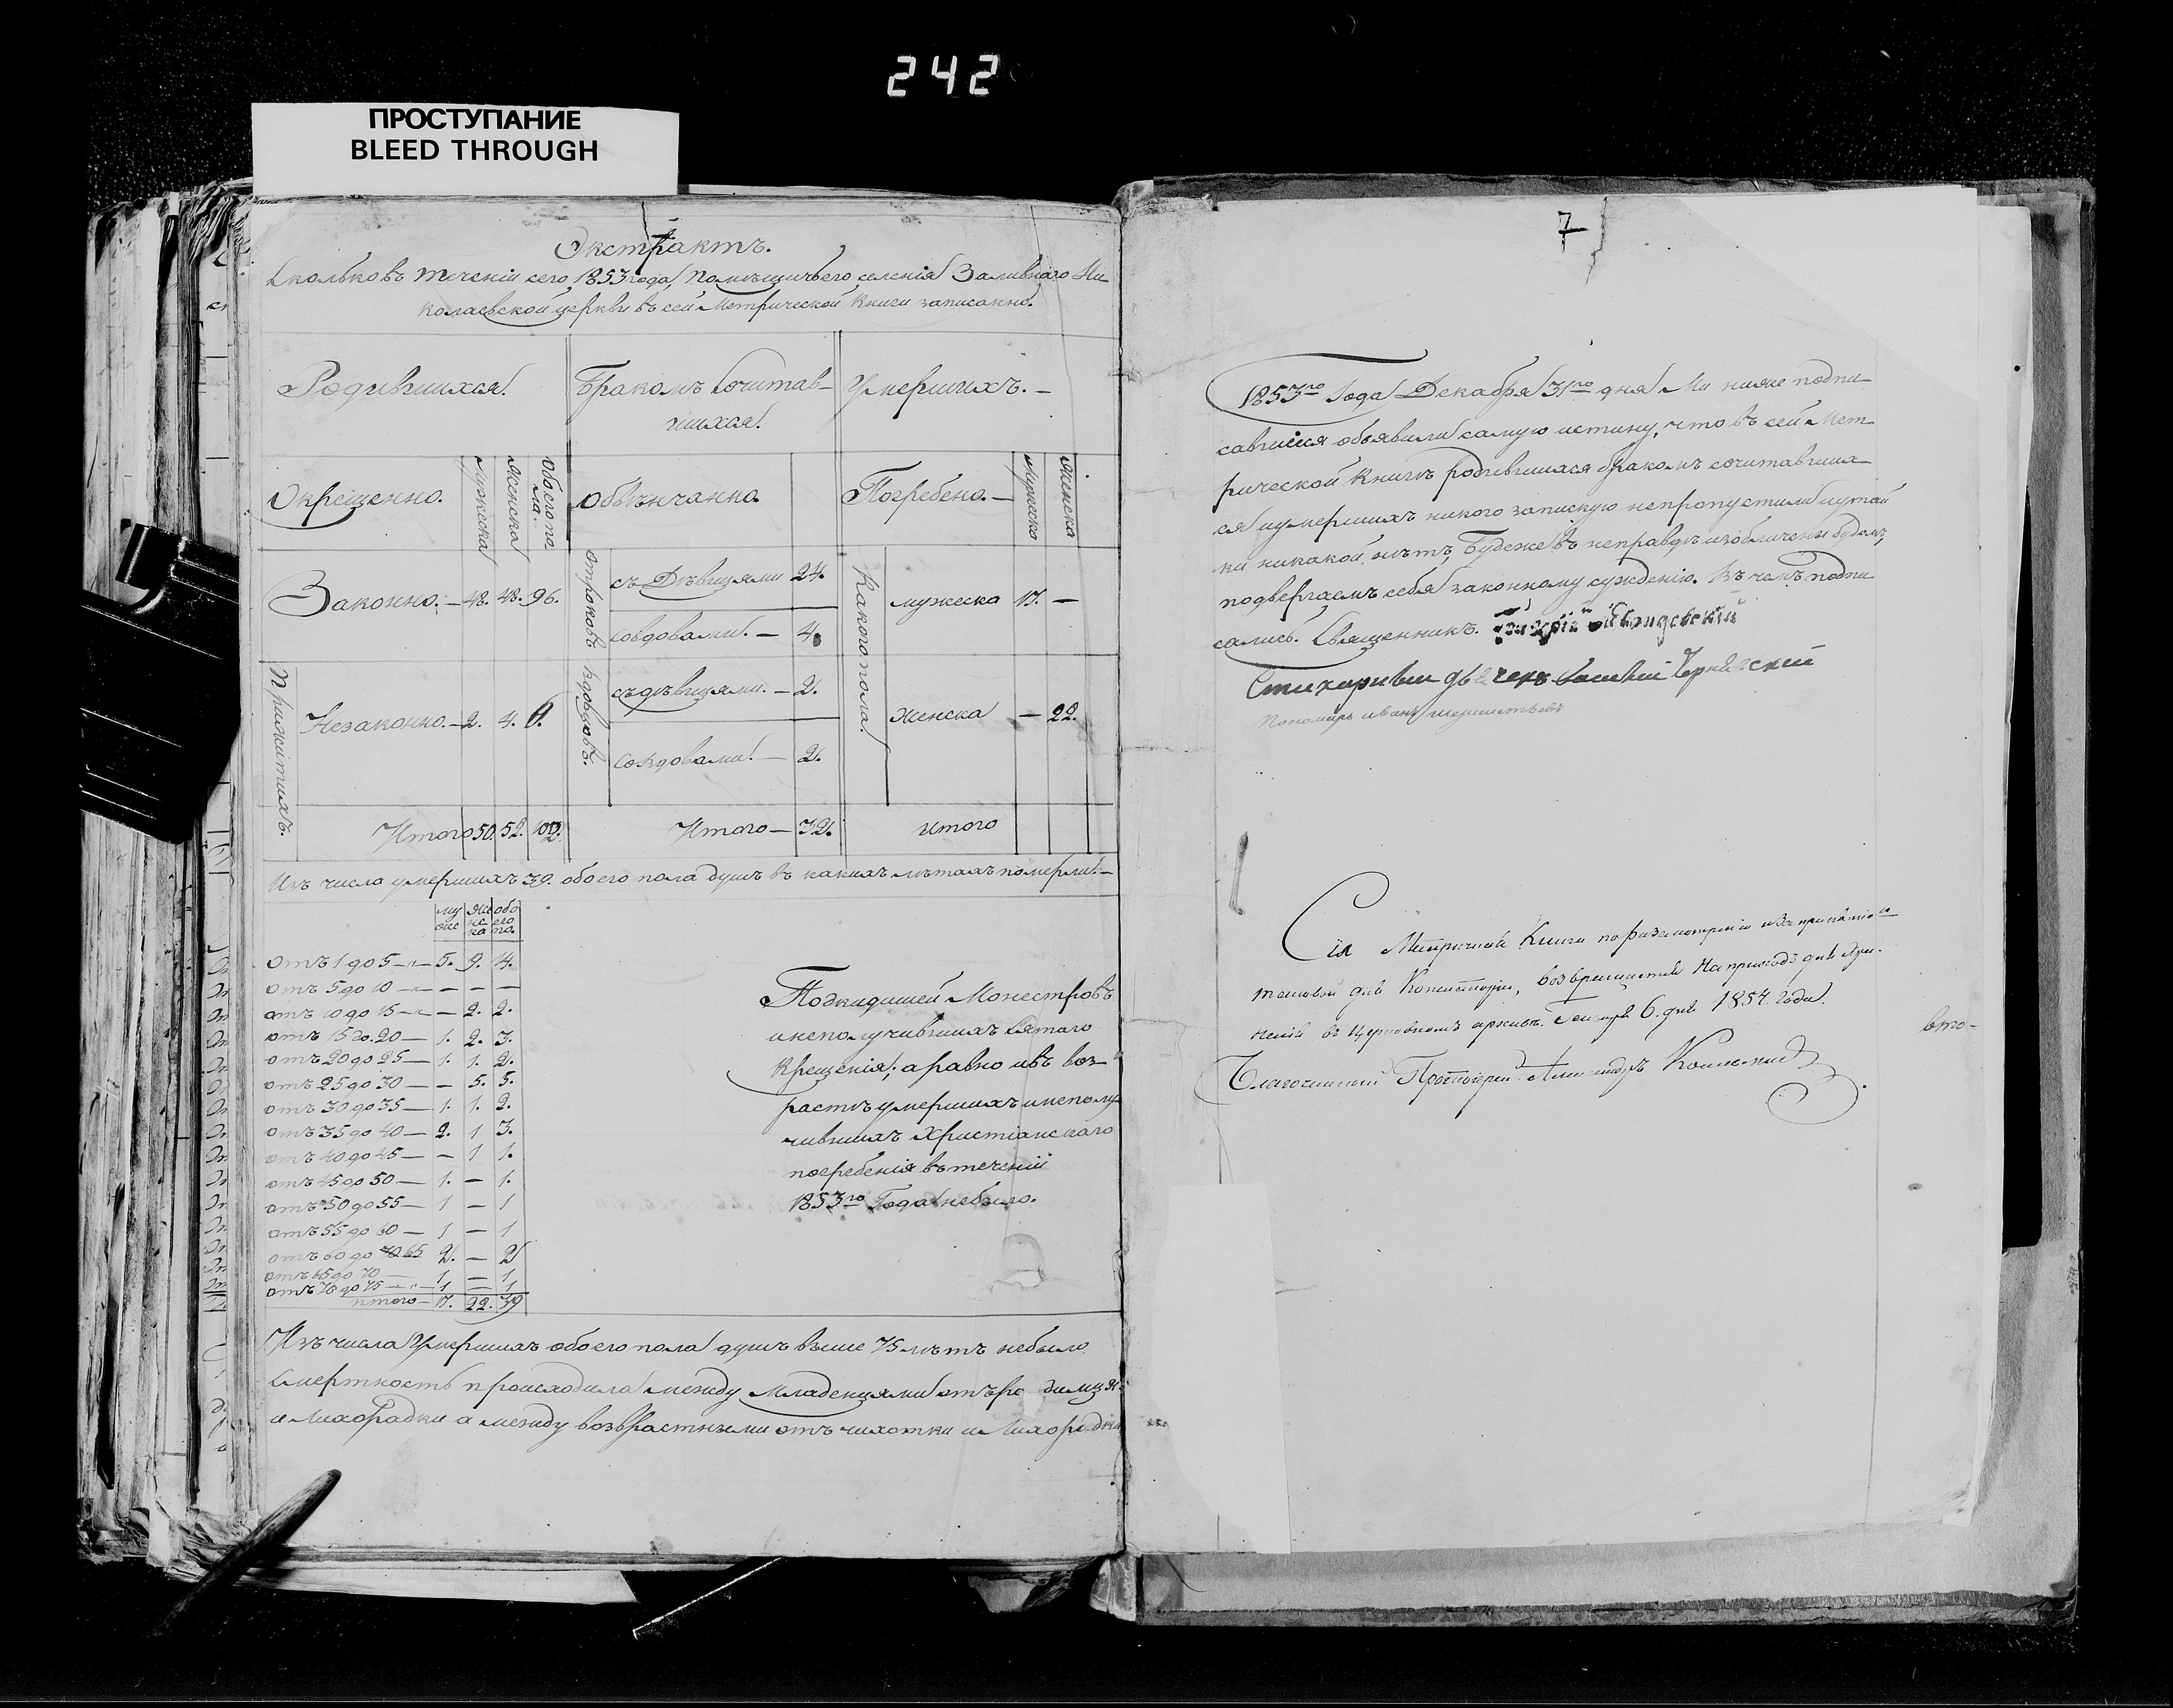 242
ПРОСТУПАНИЕ
BLEED THROUGH
Экстрактъ.
Сколько въ теченіи сего 1853 года, Помѣщичьего селенія Заливнаго Ни
колаевской церкви въ сей Метрической Книги записанно.
Родившихся. Бракомъ Сочитав- Умершихъ. –
шихся.
Окрещенно. Мужеска Женска Обоего по
ла. Обвѣнчанно Погребено. – Мужеска Женска
Законно. – 48. 48. 96. Отроковъ съ Дѣвицями 24. Какого пола. мужеска 17. –
совдовами. – 4.
Прижитихъ. Незаконно. – 2. 4. 6. Вдовцовъ. съ дѣвицями. – 2. женска – 22.
совдовами. – 2.
Итого 50. 52. 102. Итого – 32. итого
Изъ числа умершихъ 39. обоего пола душъ въ какихъ лѣтахъ померли. –
му
же же
нс
ка обо
его
по.
отъ 1 до 5 – 5. 9. 4.
отъ 5 до 10 – – – –
отъ 10 до 15 – – 2. 2.
отъ 15 до 20 – 1. 2. 3.
отъ 20 до 25 – 1. 1. 2.
отъ 25 до 30 – – 5. 5.
отъ 30 до 35 – 1. 1. 2.
отъ 35 до 40 – 2. 1 3.
отъ 40 до 45 – – 1 1.
отъ 45 до 50 – 1. – 1.
отъ 50 до 55 – 1 – 1
отъ 55 до 60 – 1 – 1
отъ 60 до 65 2. – 2
отъ 65 до 70 – 1 – 1
отъ 70 до 75 – 1 – 1
итого – 17. 22. 39
Подкидишей Монестровъ
и неполучившихъ Святаго
Крещенія; а равно и въ воз-
растѣ умершихъ и неполу
чившихъ Христіанскаго
погребенія въ теченіи
1853го Года небыло.
Изъ числа Умершихъ обоего пола душъ выше 75 лѣтъ небыло
Смертность происходила между Младенцями отъ
и Лихорадки а между возврастными отъ чихотки и Лихорадки
7
1853го Года Декабря 31го дня Ми ниже подпи
савшіися объявили самую истину, что въ сей Мет
рической Книгѣ родившихся бракомъ сочитавших
ся и умершихъ никого запискую непропустили и утай
ки никакой нѣтъ, Будеже въ неправдѣ изобличени будемъ,
подвергаемъ себя законному сужденію. Въ чемъ подпи
сались. Священникъ.
Стихарнии дьячекъ Чернявский
Пономарь иванъ
Сія Метричная Книга по разсмотреніи
для Консисторіи, возвращается На приходъ для хра-
ненія въ церковномъ архивѣ. Генваря 6. дня 1854. Года.
Благочинный Протоіерей
вто-